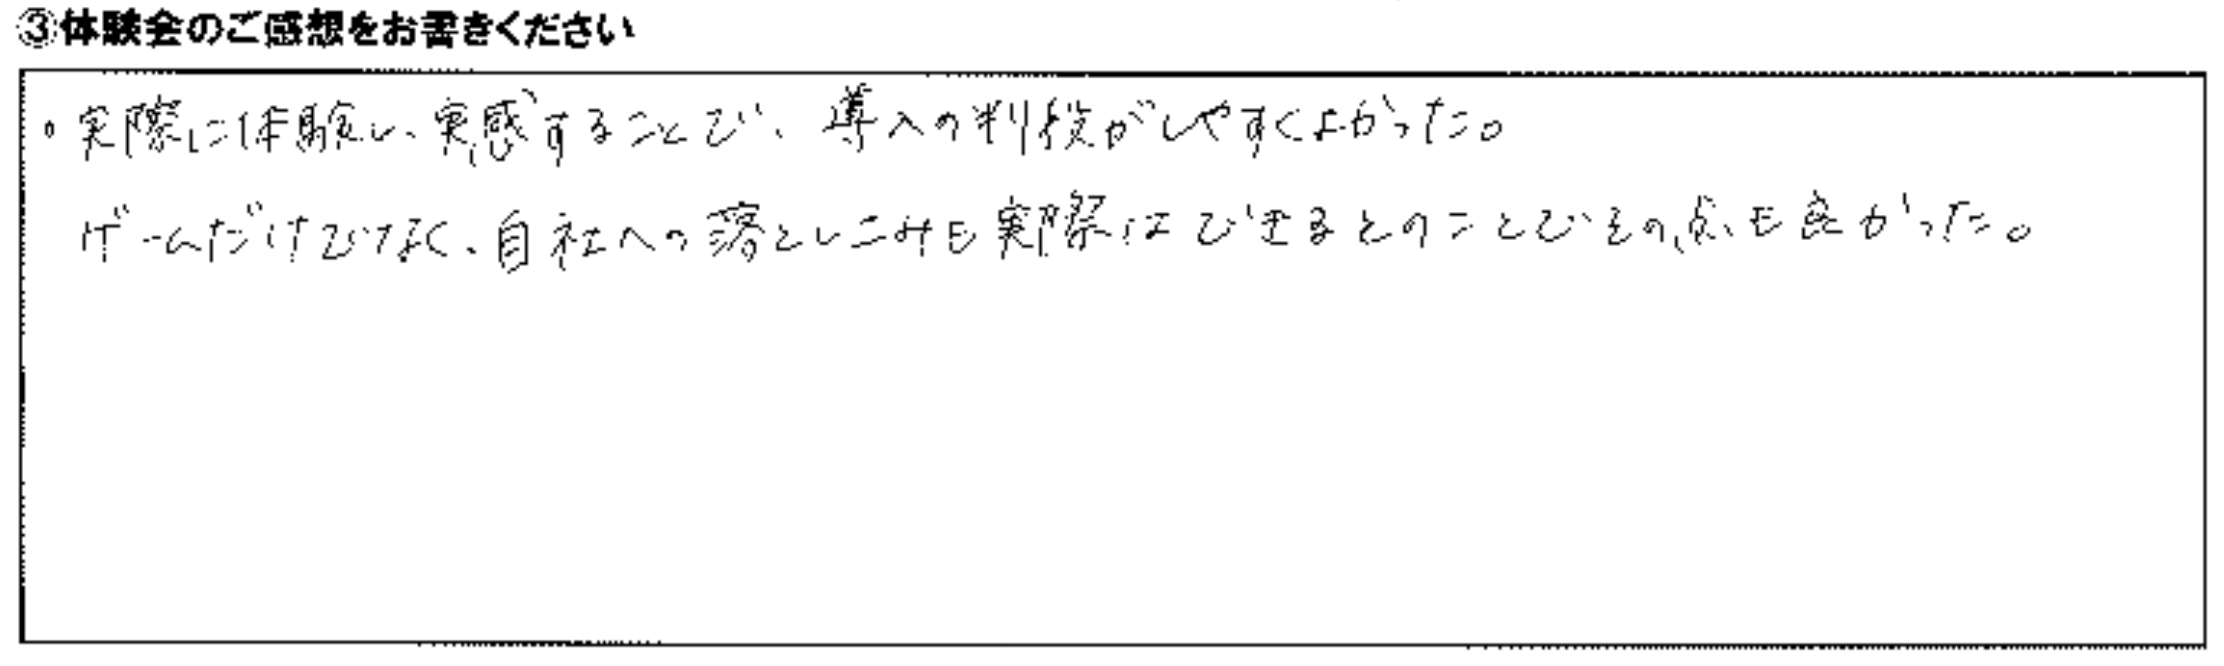 ③体験会のご感想をお書きください
・実際に体験し、実感することで、導入の判段がしやすくよかった。
ゲームだけでなく、自社への落としこみも実際はできるとのことでその点も良かった。